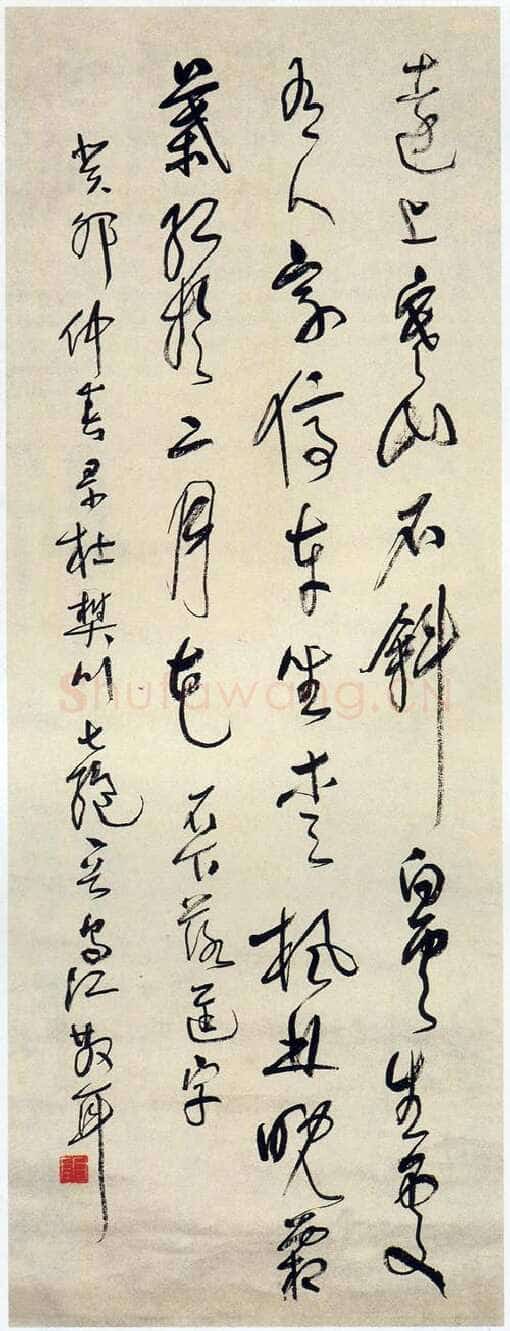 遠上寒山石斜白雲生處
有人家停車坐愛楓林晚霜
葉紅於二月花 石下落逕字
癸卯仲春录杜樊川七絕 烏江散耳
Shufawang.CN